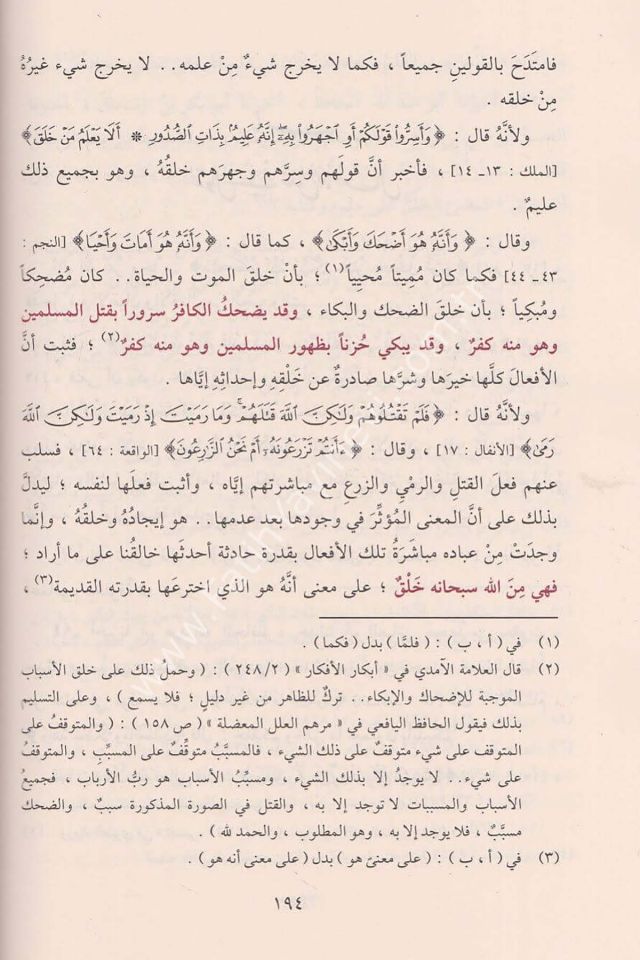 فامتَدَحَ بالقولينِ جميعاً ، فكما لا يخرج شيءٌ مِنْ علمه.. لا يخرج شيء غيرُهُ
مِنْ خلقه .
ولأنَّهُ قال : ﴿ وَأَسِرُّوا قَوْلَكُمْ أَوِ اجْهَرُوا بِهِۦٓ إِنَّهُۥ عَلِيمُۢ بِذَاتِ الصُّدُورِ * أَلَا يَعْلَمُ مَنْ خَلَقَ﴾
[الملك : ١٣ـ ١٤] ، فأخبر أنَّ قولَهم وسِرَّهم وجهرَهم خلقُهُ ، وهو بجميع ذلك
عليمٌ .
وقال : ﴿ وَأَنَّهُۥ هُوَ أَضْحَكَ وَأَبْكَىٰ﴾ ، كما قال : ﴿ وَأَنَّهُۥ هُوَ أَمَاتَ وَأَحْيَا﴾ [النجم :
٤٣ـ ٤٤] فكما كان مُمِيتاً مُحيِياً(١) ؛ بأنْ خلقَ الموت والحياة.. كان مُضحِكاً
ومُبكِياً ؛ بأن خلقَ الضحك والبكاء ، وقد يضحكُ الكافرُ سروراً بقتل المسلمين
وهو منه كفرٌ ، وقد يبكي حُزناً بظهور المسلمين وهو منه كفرٌ(٢) ؛ فثبت أنَّ
الأفعالَ كلَّها خيرَها وشرَّها صادرةٌ عن خَلْقِهِ وإحداثِهِ إيَّاها .
ولأنَّهُ قال : ﴿ فَلَمْ تَقْتُلُوهُمْ وَلَـٰكِنَّ اللَّهَ قَتَلَهُمْ ۚ وَمَا رَمَيْتَ إِذْ رَمَيْتَ وَلَـٰكِنَّ اللَّهَ
رَمَىٰ﴾ [الأنفال : ١٧] ، وقال : ﴿ ءَأَنتُمْ تَزْرَعُونَهُۥٓ أَمْ نَحْنُ الزَّٰرِعُونَ﴾ [الواقعة : ٦٤] ، فسلب
عنهم فعلَ القتلِ والرمْيِ والزرعِ مع مباشرتهم إيَّاه ، وأثبت فعلَها لنفسه ؛ ليدلَّ
بذلك على أنَّ المعنى المُؤثِّرَ في وجودها بعد عدمها.. هو إيجادُهُ وخلقُهُ ، وإنَّما
وجدَتْ مِنْ عباده مباشَرَةُ تلك الأفعال بقدرة حادثة أحدثَها خالقُنا على ما أراد ؛
فهي مِنَ الله سبحانه خَلْقٌ ؛ على معنى أنَّهُ هو الذي اخترعَها بقدرته القديمة(٣) ،
(١) في ( أ ، ب ) : ( فلمَّا ) بدل ( فكما ) .
(٢) قال العلامة الآمدي في « أبكار الأفكار » ( ٢/ ٢٤٨ ) : ( وحملُ ذلك على خلق الأسباب
الموجبة للإضحاك والإبكاء.. تركٌ للظاهر من غير دليلٍ ؛ فلا يسمع ) ، وعلى التسليم
بذلك فيقول الحافظ اليافعي في « مرهم العلل المعضلة » ( ص ١٥٨ ) : ( والمتوقف على
المتوقف على شيء متوقفٌ على ذلك الشيء ، فالمسبَّبُ متوقِّفٌ على المسبِّبِ ، والمتوقفُ
على شيء.. لا يوجدُ إلا بذلك الشيء ، ومسبِّبُ الأسباب هو ربُّ الأرباب ، فجميعُ
الأسباب والمسببات لا توجد إلا به ، والقتل في الصورة المذكورة سببٌ ، والضحك
مسبَّبٌ ، فلا يوجد إلا به ، وهو المطلوب ، والحمد لله ) .
(٣) في ( أ ، ب ) : ( على معنىً هو ) بدل ( على معنى أنه هو ) .
١٩٤